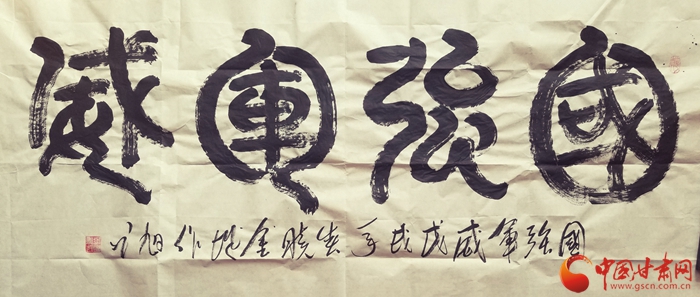 國強軍威
國強軍威戊戌年春曉金城作旭
中国甘肃网
www.gscn.com.cn